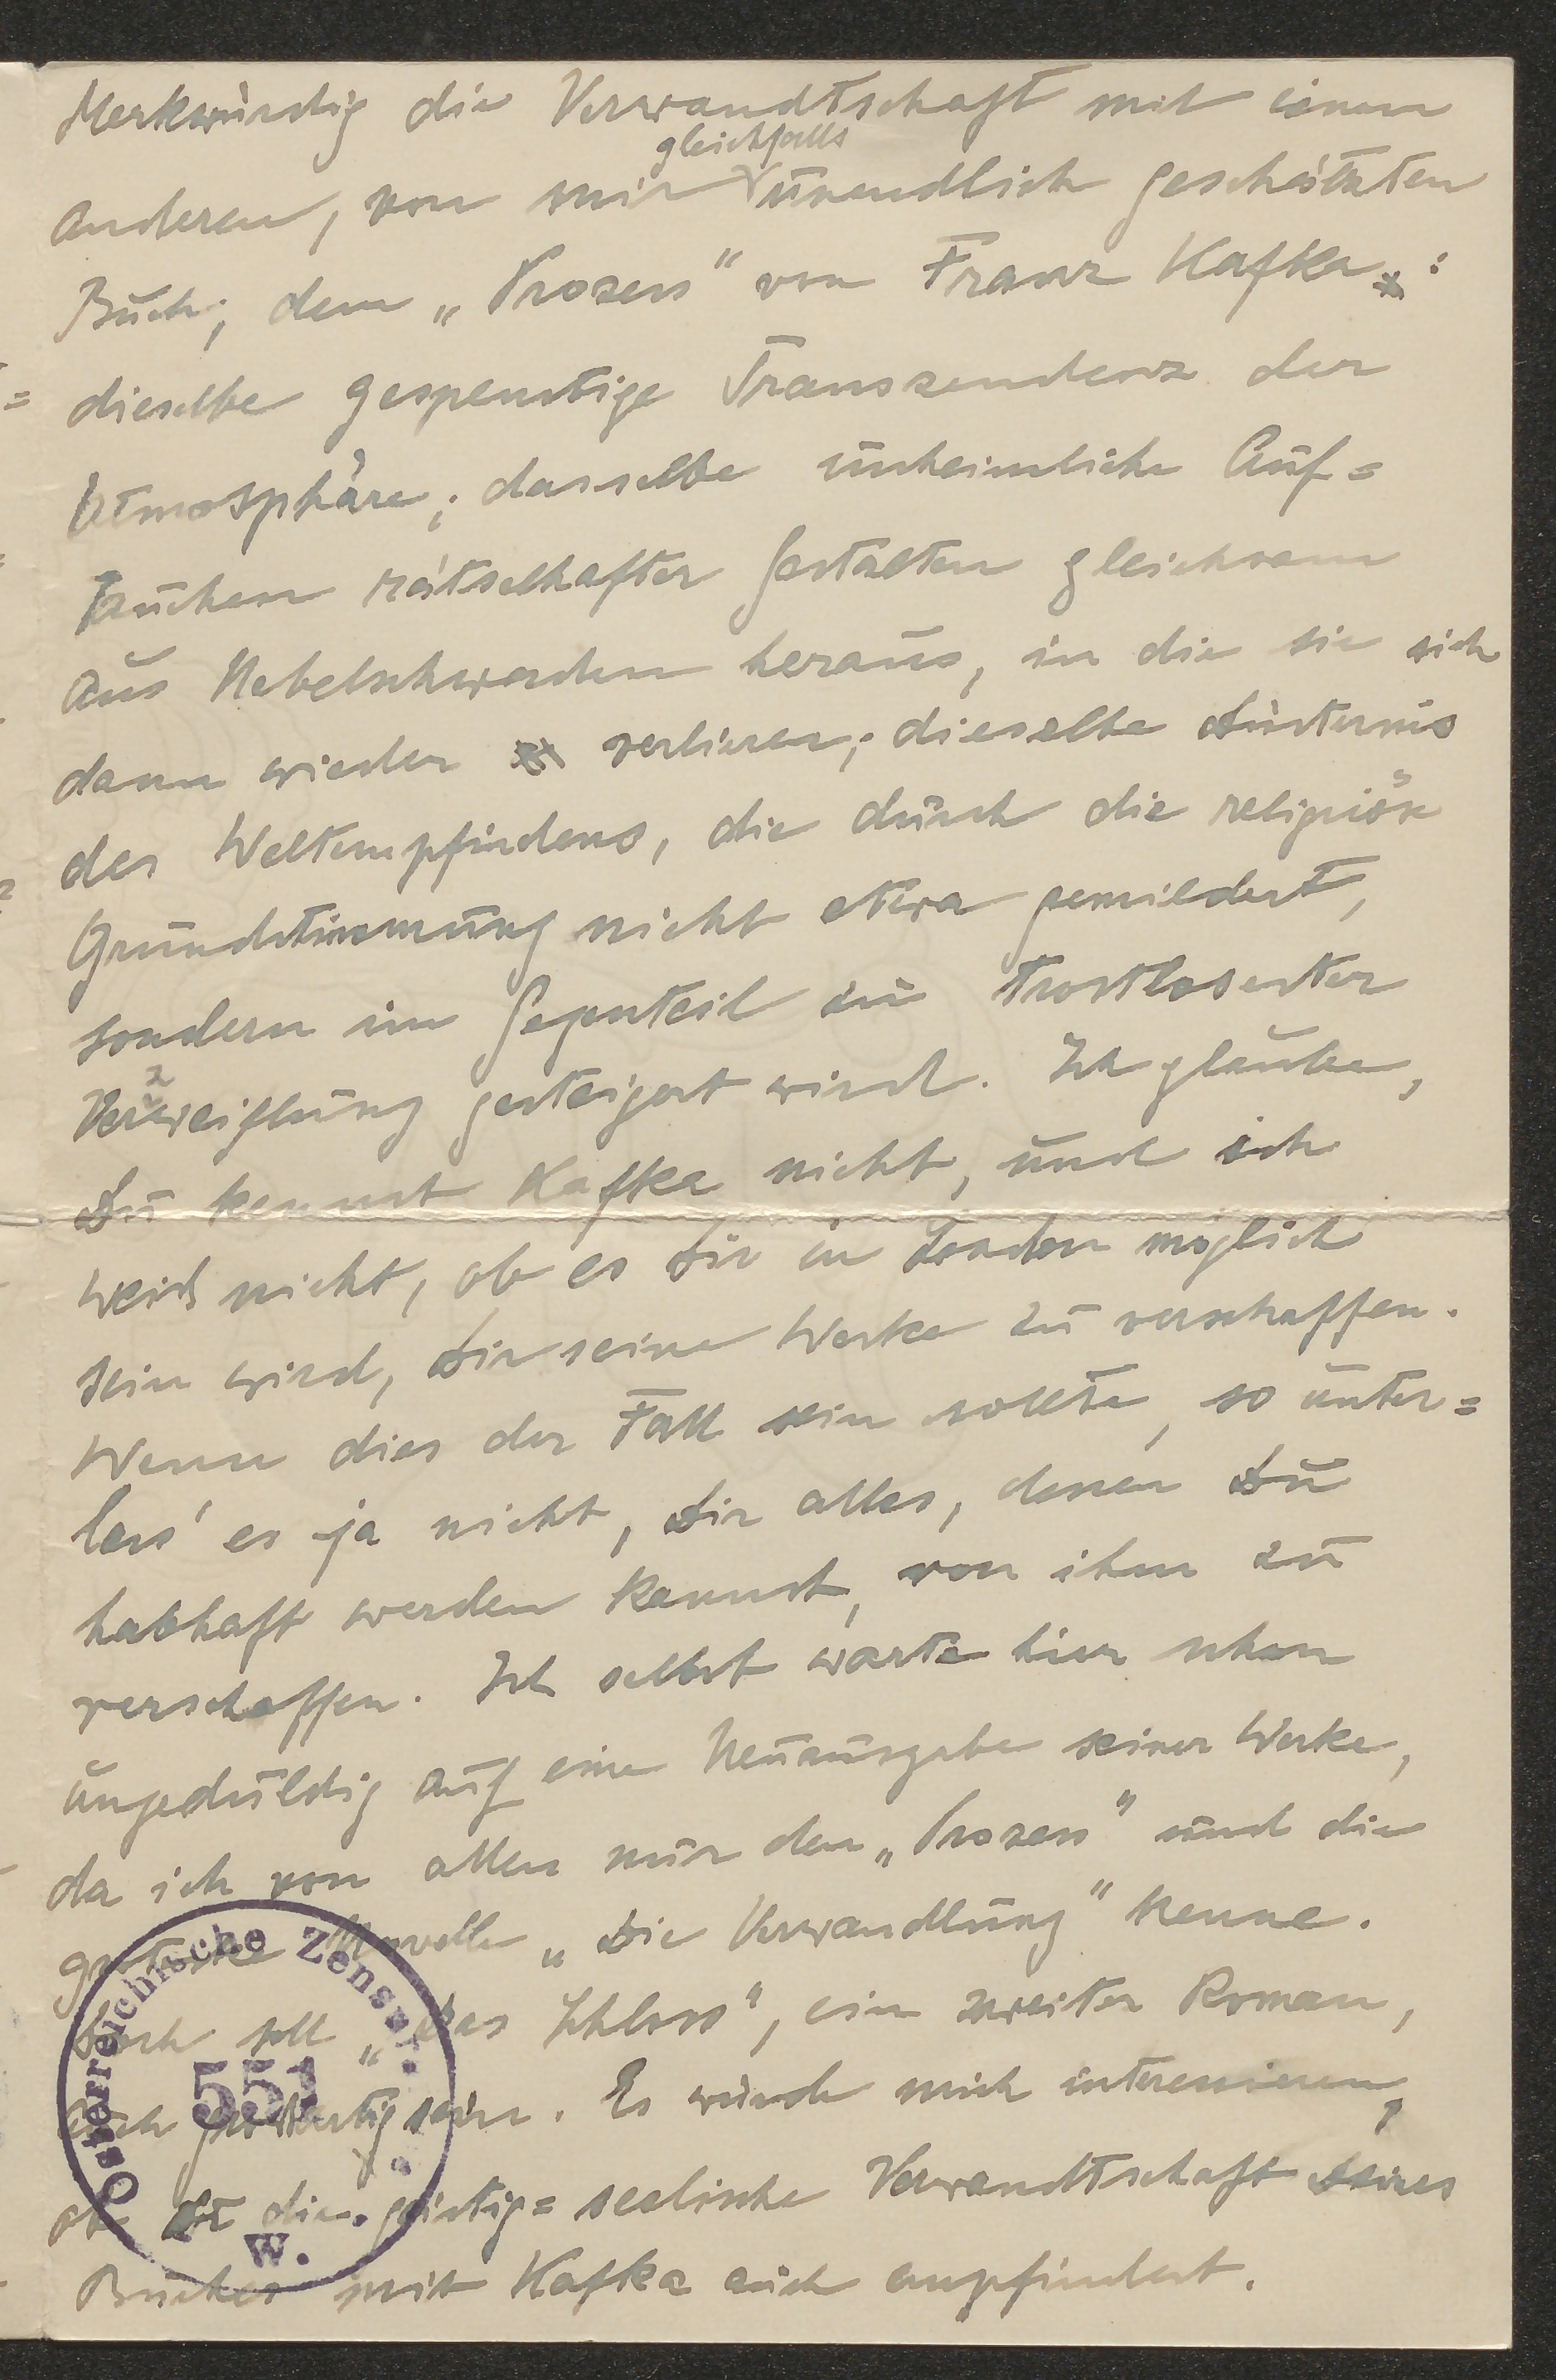 Merkwürdig die Verwandtschaft mit einem
gleichfalls
anderen, von mir unendlich geschätzten
Buch, dem „Prozess" von Franz Kafka:
dieselbe gespenstige Transzendenz der
Atmosphäre; dasselbe unheimliche Auf=
tauchen rätselhafter Gestalten gleichsam
aus Nebelschwaden heraus, in die sie sich
dann wieder verlieren; dieselbe Düsternis
des Weltempfindens, die durch die religiöse
Grundstimmung nicht etwa gemildert,
sondern im Gegenteil zu trostlosester
Verzweiflung gesteigert wird. Ich glaube,
Du kennst Kafka nicht, und ich
weiß nicht, ob es Dir in London möglich
sein wird, Dir seine Werke zu verschaffen.
Wenn dies der Fall sein sollte, so unter=
lass' es ja nicht, Dir alles, dessen Du
habhaft werden kannst, von ihm zu
verschaffen. Ich selbst warte hier schon
ungeduldig auf eine Neuausgabe seiner Werke,
da ich von allen nur den „Prozess" und die
groteske Novelle „Die Verwandlung" kenne.
Doch soll „Das Schloss", ein zweiter Roman,
auch großartig sein. Es würde mich interessieren,
ob Du die geistig=seelische Verwandtschaft Deines
Buches mit Kafka auch empfindest.
Österreichische Zensur.
551
W.